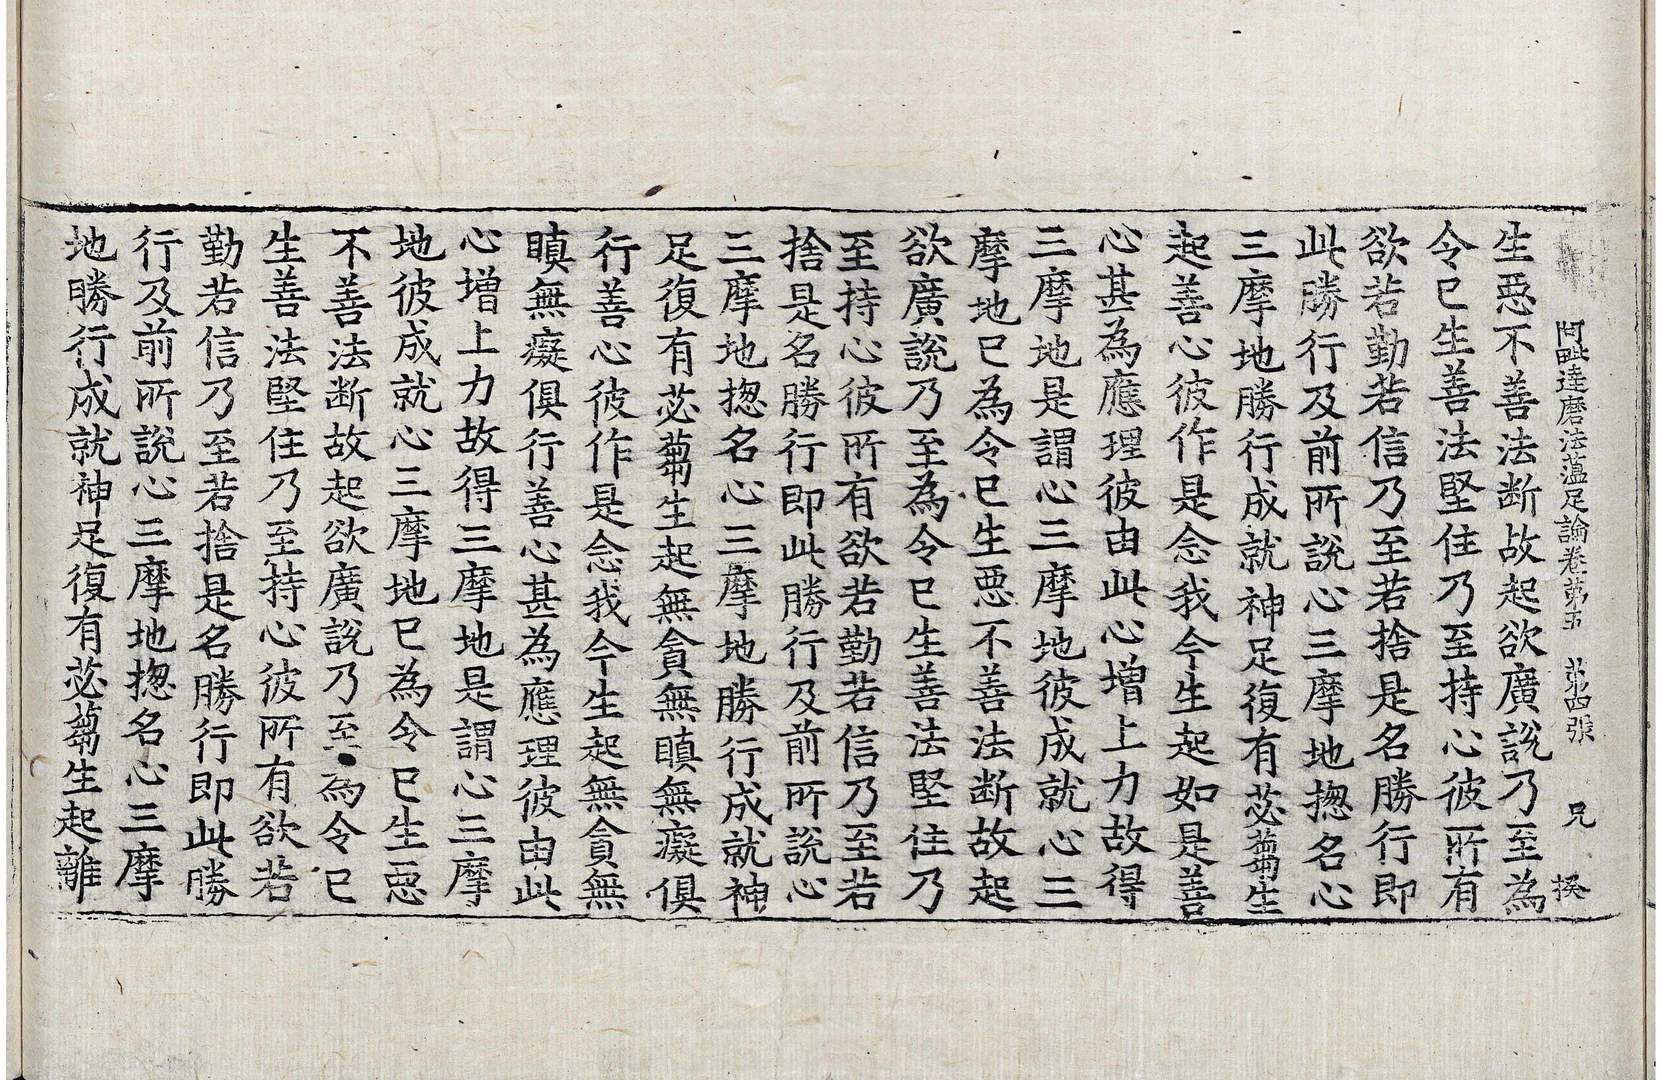 阿毗達磨法蘊足論卷第五 第四張 兄 揆
生惡不善法断故起欲廣說乃至為
令已生善法堅住乃至持心彼所有
欲若勤若信乃至若捨是名勝行即
此勝行及前所說心三摩地揔名心
三摩地勝行成就神足復有苾蒭生
起善心彼作是念我今生起如是善
心甚為應理彼由此心增上力故得
三摩地是謂心三摩地彼成就心三
摩地已為令已生惡不善法断故起
欲廣說乃至為令已生善法堅住乃
至持心彼所有欲若勤若信乃至若
捨是名勝行即此勝行及前所說心
三摩地揔名心三摩地勝行成就神
足復有苾蒭生起無貪無瞋無癡俱
行善心彼作是念我今生起無貪無
瞋無癡俱行善心甚為應理彼由此
心增上力故得三摩地是謂心三摩
地彼成就心三摩地已為令已生惡
不善法断故起欲廣說乃至為令已
生善法堅住乃至持心彼所有欲若
勤若信乃至若捨是名勝行即此勝
行及前所說心三摩地揔名心三摩
地勝行成就神足復有苾蒭生起離